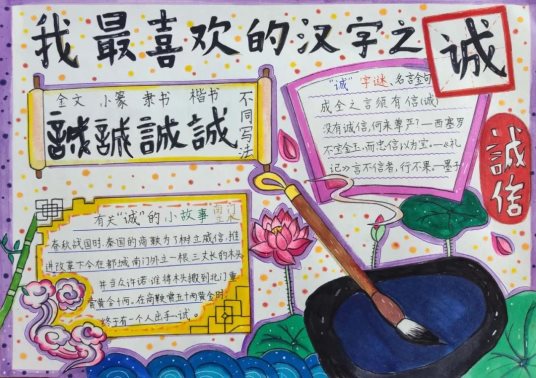 我最喜欢的汉字之诚
金文 小篆 隶书 楷书
誠誠誠誠
不同写法
"诚"字谜、名言金句
成全之言须有信(诚)
没有诚信,何来尊严?—西塞罗
不宝金玉,而忠信以为宝。—《礼
记》言不信者,行不果。—墨子
誠信
有关"诚"的小故事
春秋战国时,秦国的商鞅为了树立威信,推
进改革下令在都城南门外立一根三丈长的木头
并当众许诺:谁得木搬到北门重
赏黄金十两。在商鞅赏五十两黄金时,
终于有一个人出手一试。